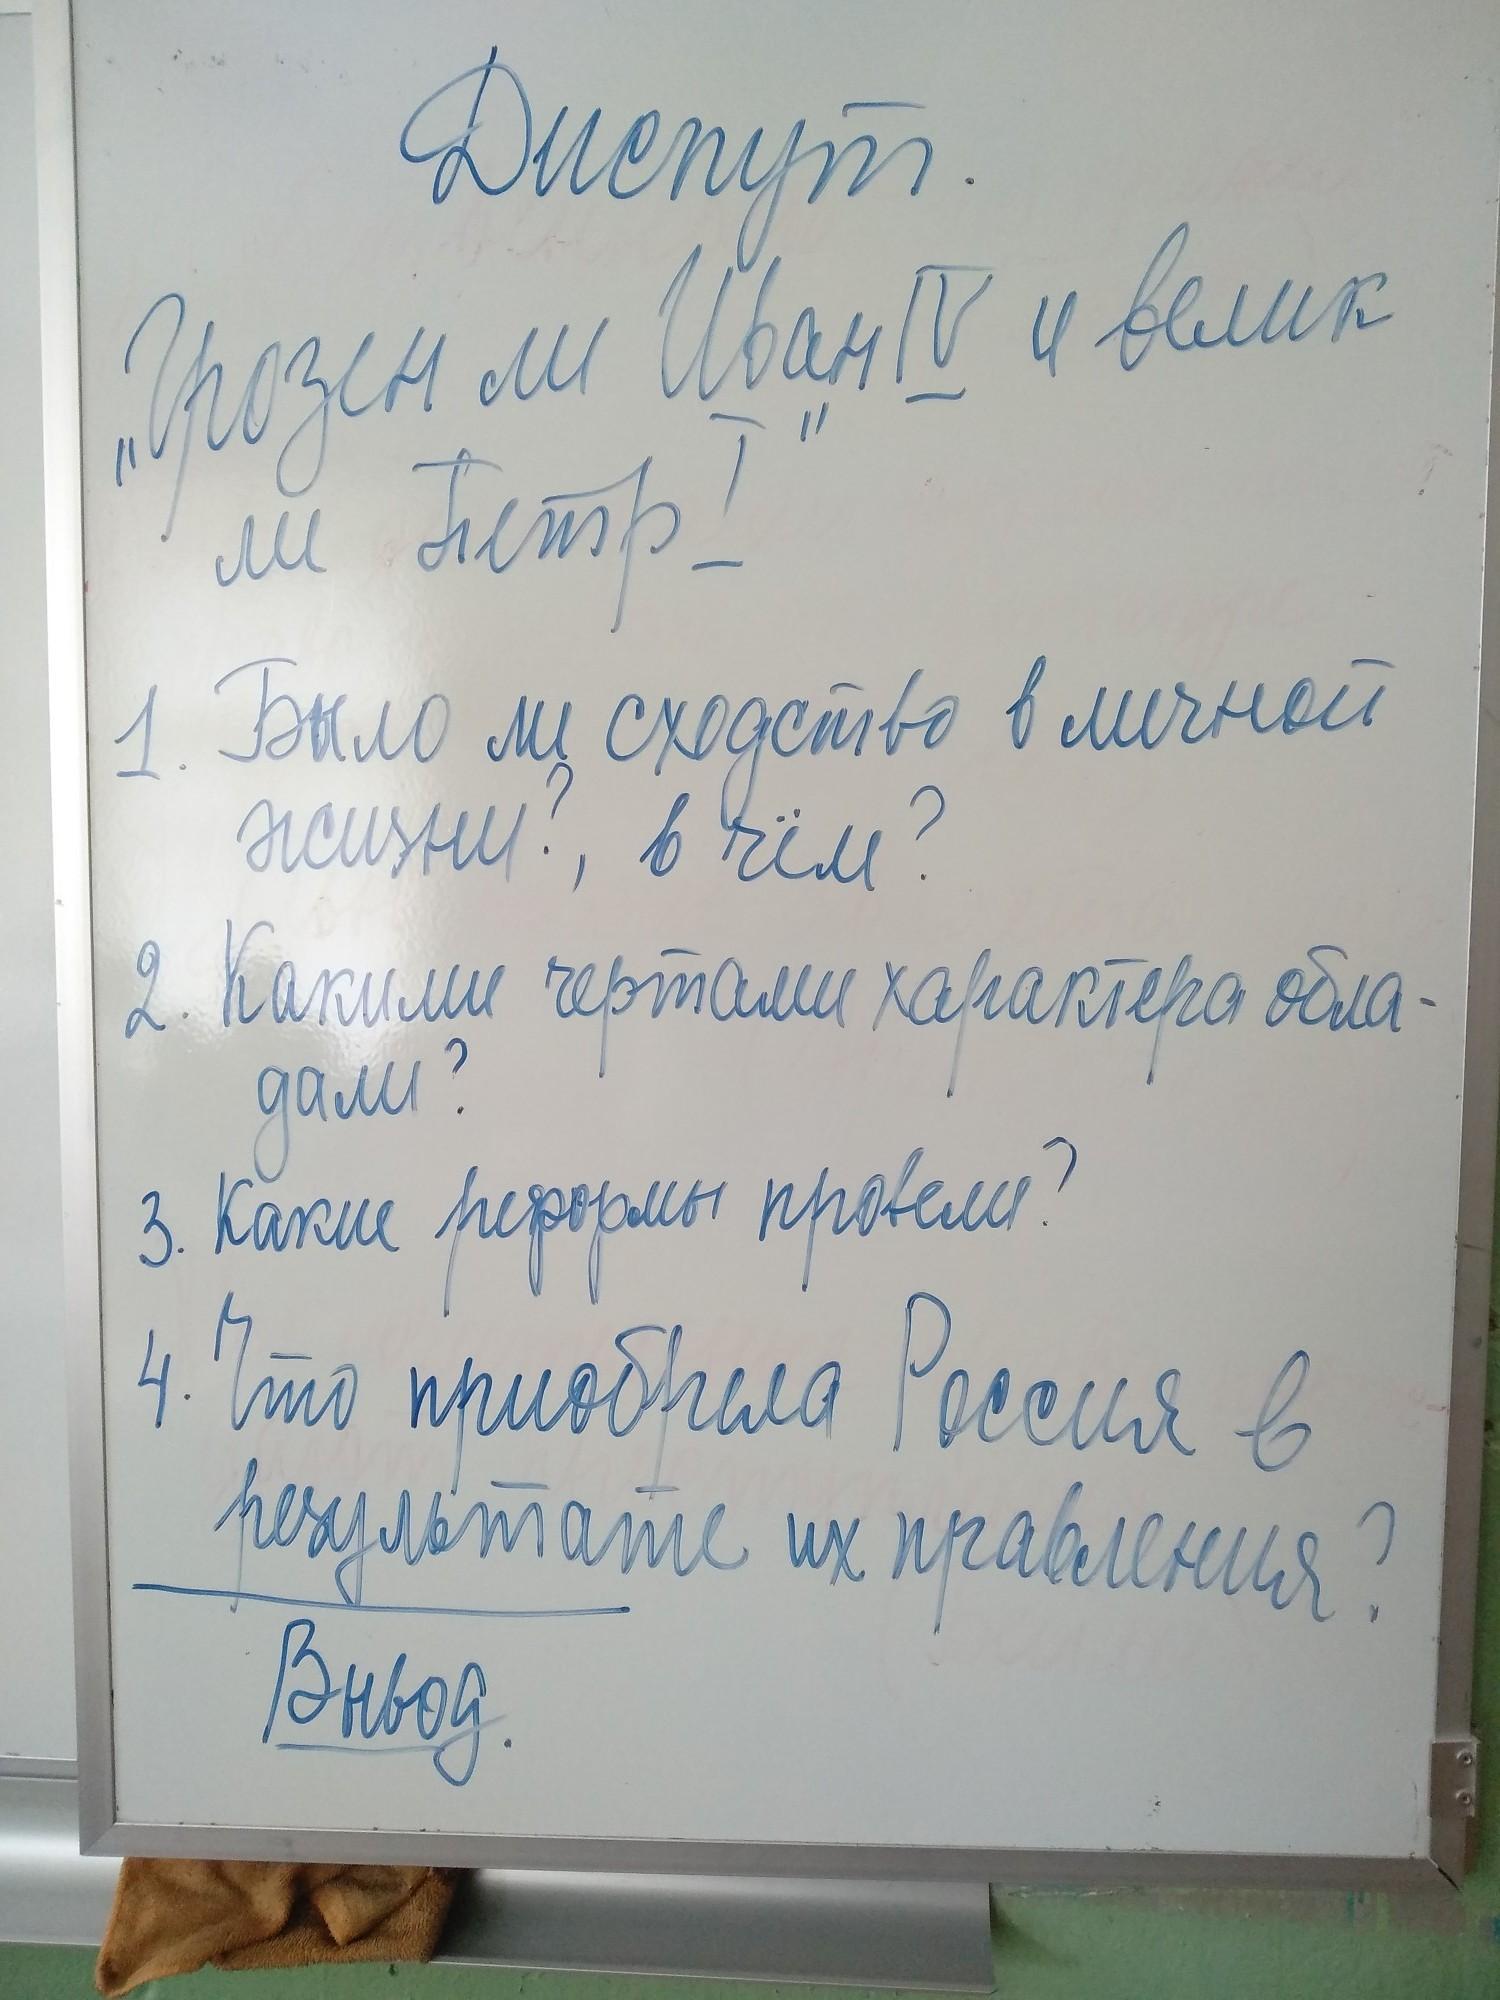 Диспут.
„Грозен ли Иван IV и велик
ли Петр I"
1. Было ли сходство в личной
жизни?, в чём?
2. Какими чертами характера обла-
дали?
3. Какие реформы провели?
4. Что приобрела Россия в
результате их правления?
Вывод.